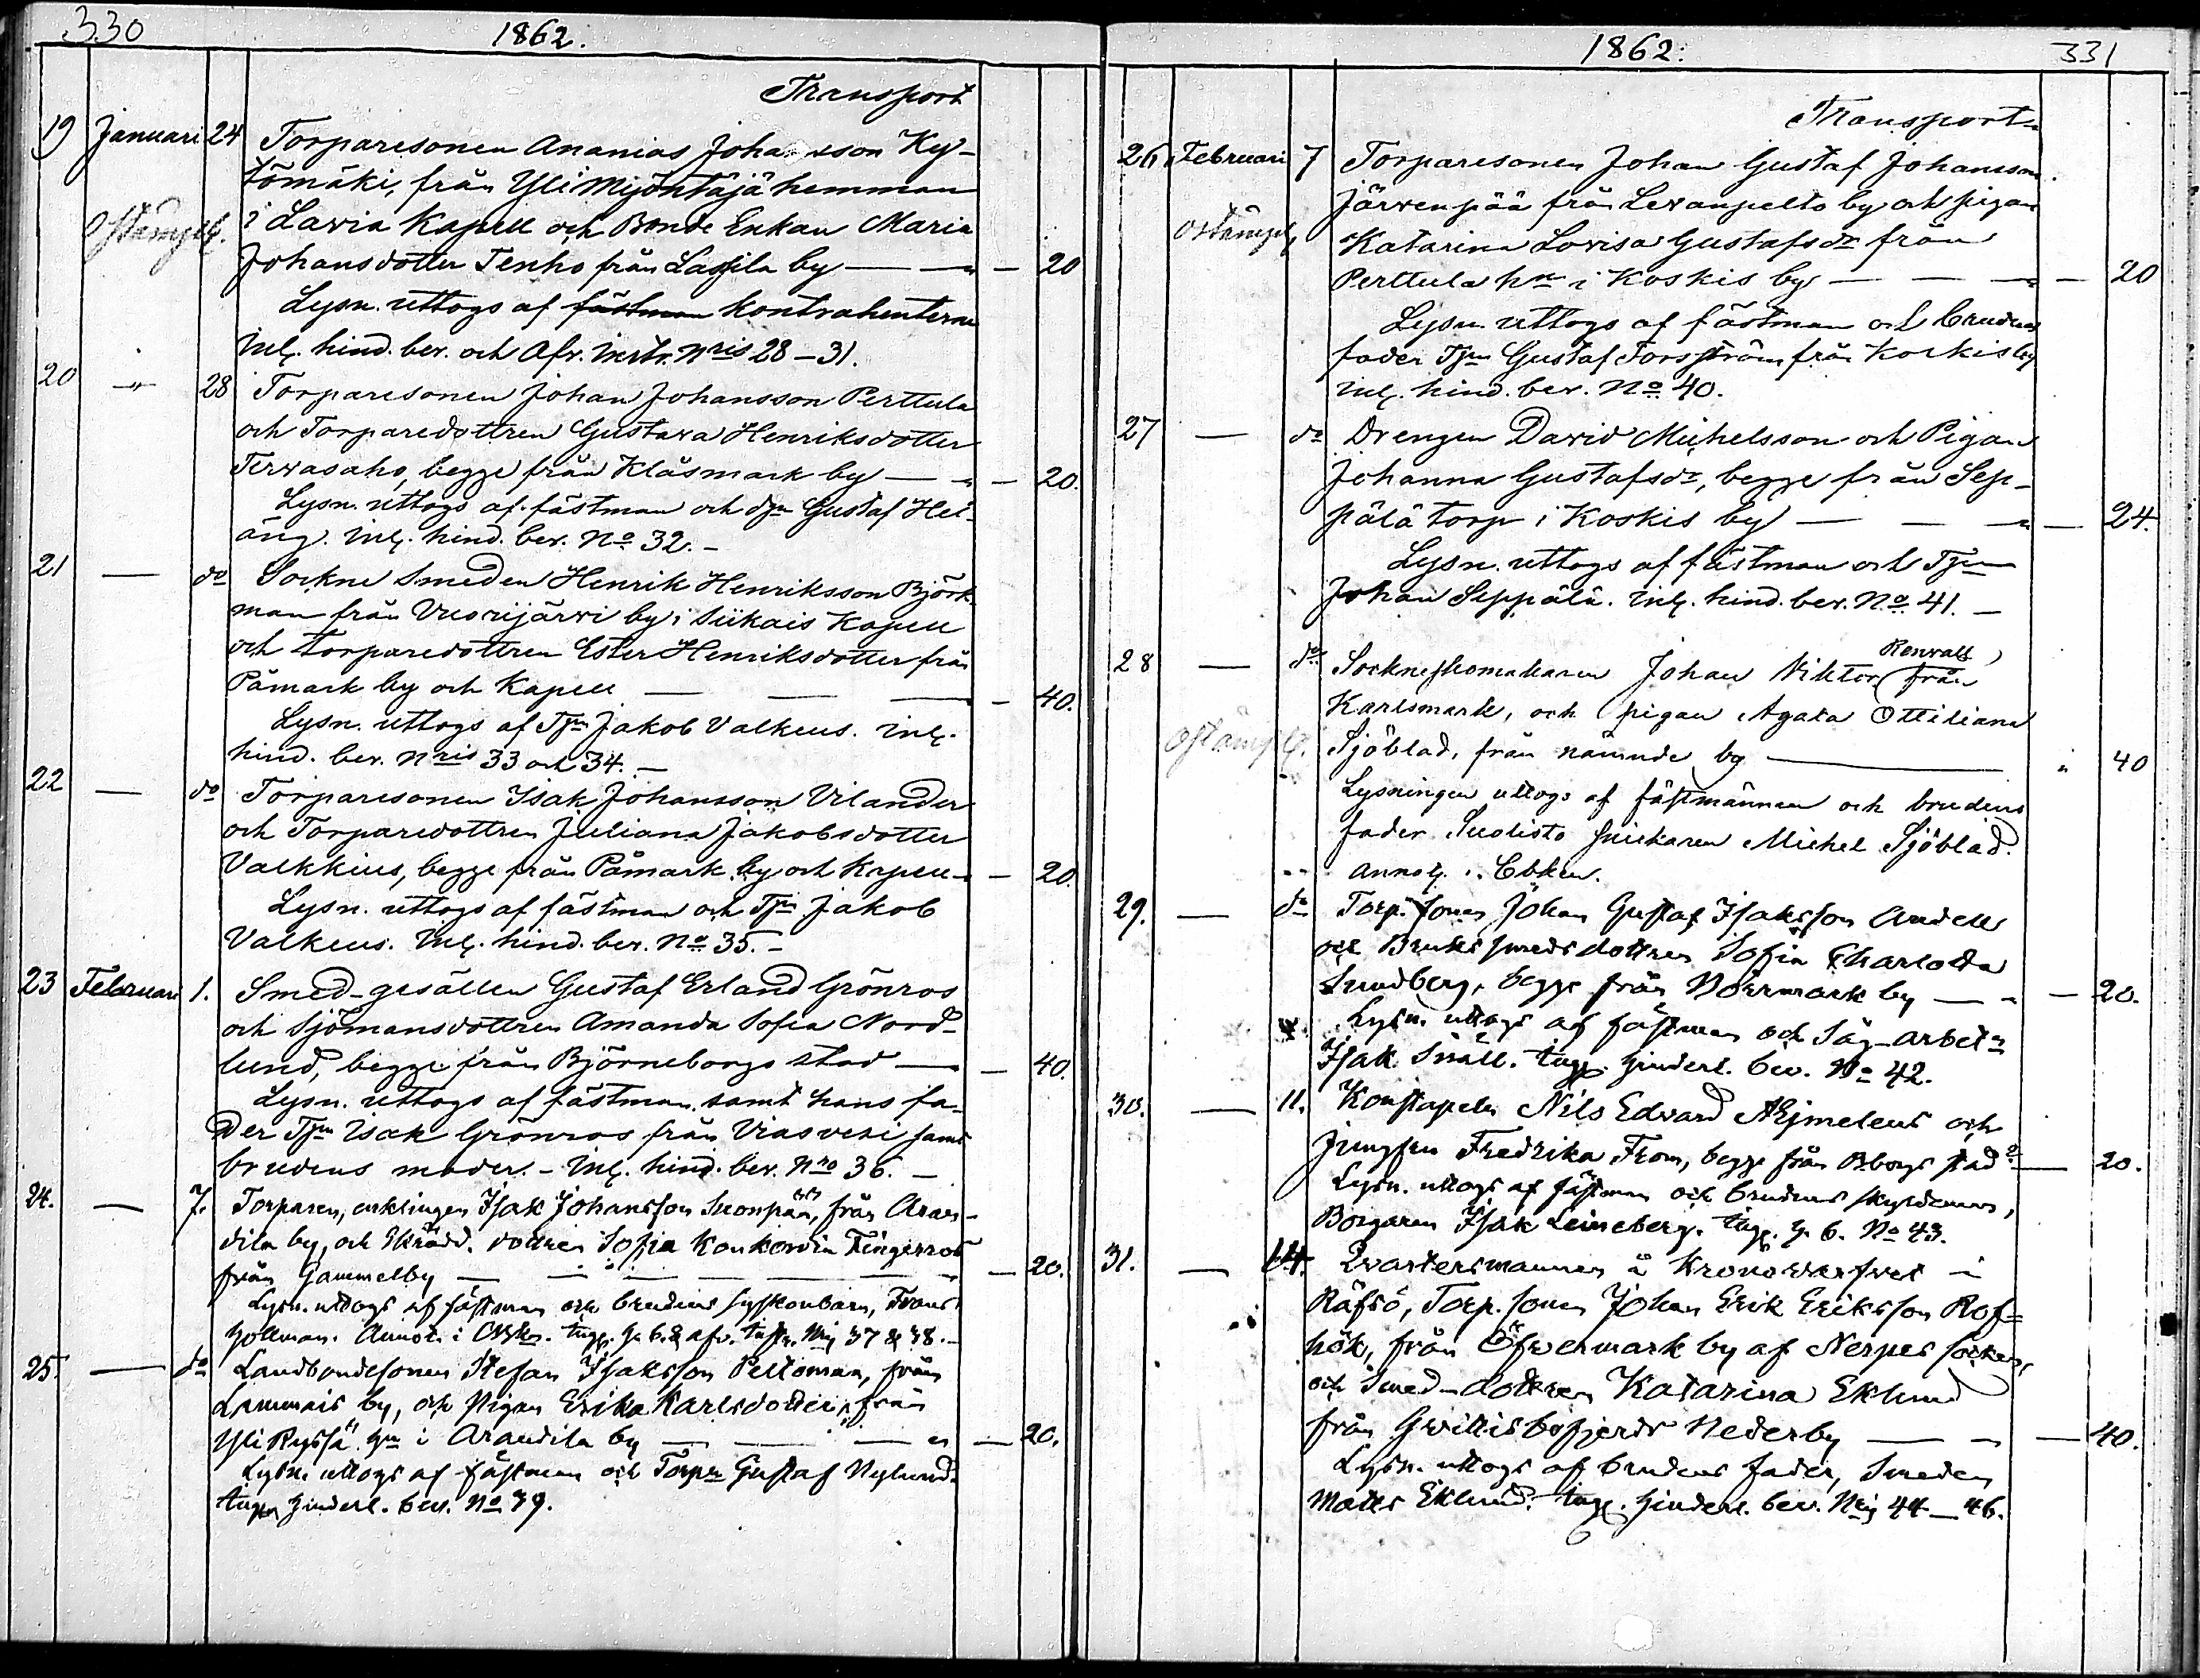 330
1862.
Transport
19 Januari 24 Torparesonen Ananias Johansson Ky-
tömäki, från Yli Mijöntäjä hemman
Ostämpl. i Lavia Kapell och Bonde Enkan Maria
Johansdotter Tenho från Lassila by — " — 20
Lysn. uttogs af fästman kontrahenterne
Inl. hind. bev. och Afv. instr. Nris 28–31.
20 " 28 Torparesonen Johan Johansson Perttula
och Torparedottren Gustava Henriksdotter
Tervasaho, begge från Klåsmark by — " — 20.
Lysn. uttogs af fästman och Gustaf Hel-
äng. Inl. hind. bev. No 32. –
21 — do Sockne Smeden Henrik Henriksson Björk-
man från Vuorijärvi by i Siikais Kapell
och torparedottren Ester Henriksdotter från
Påmark by och Kapell — — — 40.
Lysn. uttogs af Tpn Jakob Valkeus. Inl.
hind. bev. Nris 33 och 34. —
22 — do Torparesonen Isak Johansson Vilander
och Torparedottren Juliana Jakobsdotter
Valkkius, begge från Påmark by och Kapell — 20.
Lysn. uttogs af fästman och Tpn Jakob
Valkeus. Inl. hind. bev. No 35. –
23 Februari 1. Smed-gesällen Gustaf Erland Grönros
och Sjömansdottren Amanda Sofia Nord-
lund, begge från Björneborgs stad — — 40.
Lysn. uttogs af fästman samt hans fa-
der Tpn Isak Grönros från Viasvesi samt
brudens moder. – Inl. hind. bev. Nro 36. –
24. — 7. Torparen, enklingen Isak Johansson Suonpää, från Aran-
dila by, och Skrädd. dottren Sofia Konkordia Fingerroos
från Gammelby — — — 20.
Lysn. uttogs af fästman och brudens syskonbarn, Frans
Hollman. Annot. i Cbkn. h. b. & afv. Nris 37 & 38. –
25. — do Landbondesonen Stefan Isaksson Peltomaa, från
Lammais by, och Pigan Erika Karlsdotter, från
Yli Ryssä hn i Arandila by — — " — 20.
Lysn. uttogs af fästman och Torpn Gustaf Nylund.
hinderl. bev. No 39.
1862.
331
Transport
26 Februari 7 Torparesonen Johan Gustaf Johansson
Järvenpää från Levanpelto by och pigan
Ostämpl. Katarina Lovisa Gustafsdr från
Perttula hn i Koskis by — — " — 20
Lysn. uttogs af fästman och brudens
fader Tpn Gustaf Forsström från Koskis by
inl. hind. bev. No 40.
27 — do Drengen David Michelsson och Pigan
Johanna Gustafsdr, begge från Sep-
pälä torp i Koskis by — — " — 24.
Lysn. uttogs af fästman och Tpn
Johan Seppälä. Inl. hind. bev. No 41. —
28 — do Sockneskomakaren Johan Viktor Renvall, från
Karlsmark, och pigan Agata Ottiliana
Ostämpl. Sjöblad, från nämnde by — " 40
Lysningen uttogs af fästmannen och brudens
fader Snickaren Michel Sjöblad.
annot. i Cbken.
29. — do Torp. sonen Johan Gustaf Isaksson Andell
och Bruks smedsdottren Sofia Charlotta
Sundberg, begge från Norrmark by — " — 20.
Lysn. uttogs af fästman och Såg-arbetn
Isak Snäll. hinderl. bev. No 42.
30. — 11. Konstapeln Nils Edvard Ahjmeleus och
jungfrun Fredrika From, begge från B.borgs stad — 20.
Lysn. uttogs af fästman och brudens
Borgaren Isak Leineberg. h. b. No 43.
31. — 14. Qvartersmannen å Kronowarfvet i
Räfsö, Torp. sonen Johan Erik Eriksson Rof-
hök, från Öfvermark by af Nerpes socken,
och Smed-dottren Katarina Eklund
från Gvittisbofjerds Nederby — — — 40.
Lysn. uttogs af brudens fader, Smeden
Matts Eklund. hinderl. bev. Nris 44–46.